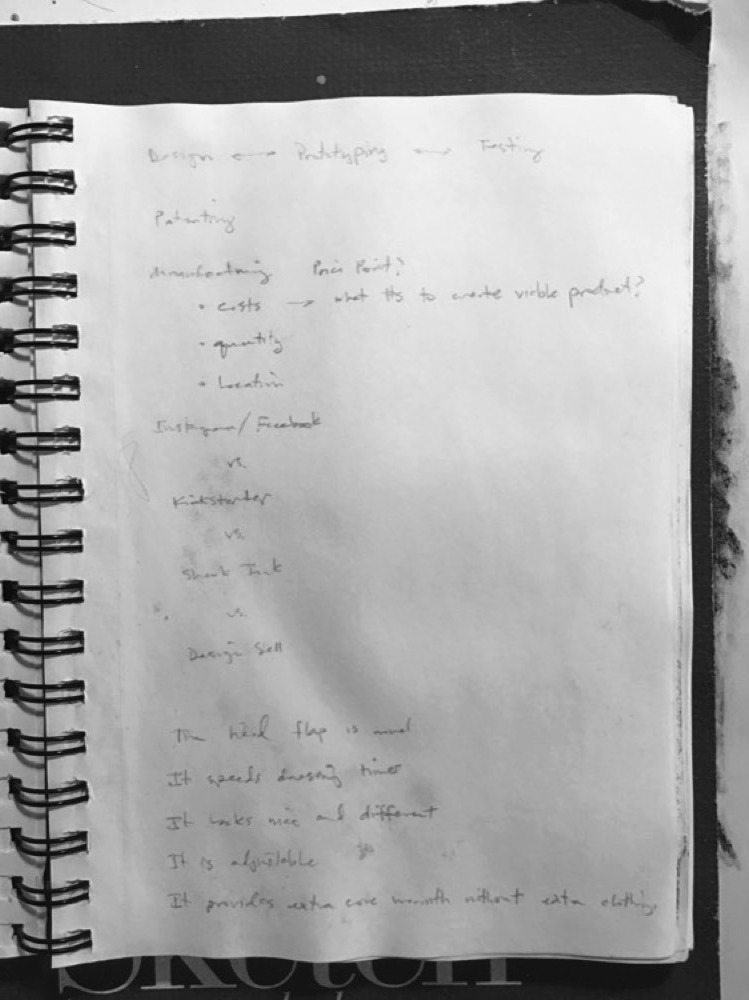 Design ⟷ Prototyping ⟷ Testing
Patenting
Manufacturing Price Point?
• costs → what to create viable product?
• quantity
• Location
Instagram/Facebook
vs.
Kickstarter
vs.
Shark Tank
vs.
Design Sell
The flap is
It speeds dressing times
It looks nice and different
It is adjustable
It provides extra core warmth without extra clothing.
Sketch